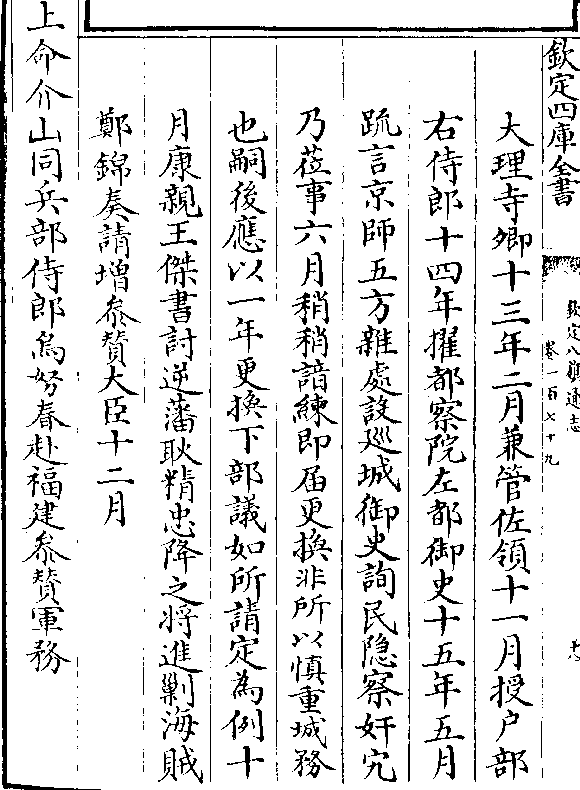 欽定四庫全書
欽定八旗通志
卷一百七十九
大理寺卿十三年二月兼管佐領十一月授户部
右侍郎十四年擢都察院左都御史十五年五月
疏言京師五方雜處設巡城御史詢民隱察奸宄
乃莅事六月稍稍諳練即届更換非所以慎重城務
也嗣後應以一年更換下部議如所請定為例十
月康親王傑書討逆藩耿精忠降之将進剿海賊
鄭錦奏請增叅賛大臣十二月
上命介山同兵部侍郎烏努春赴福建叅賛軍務